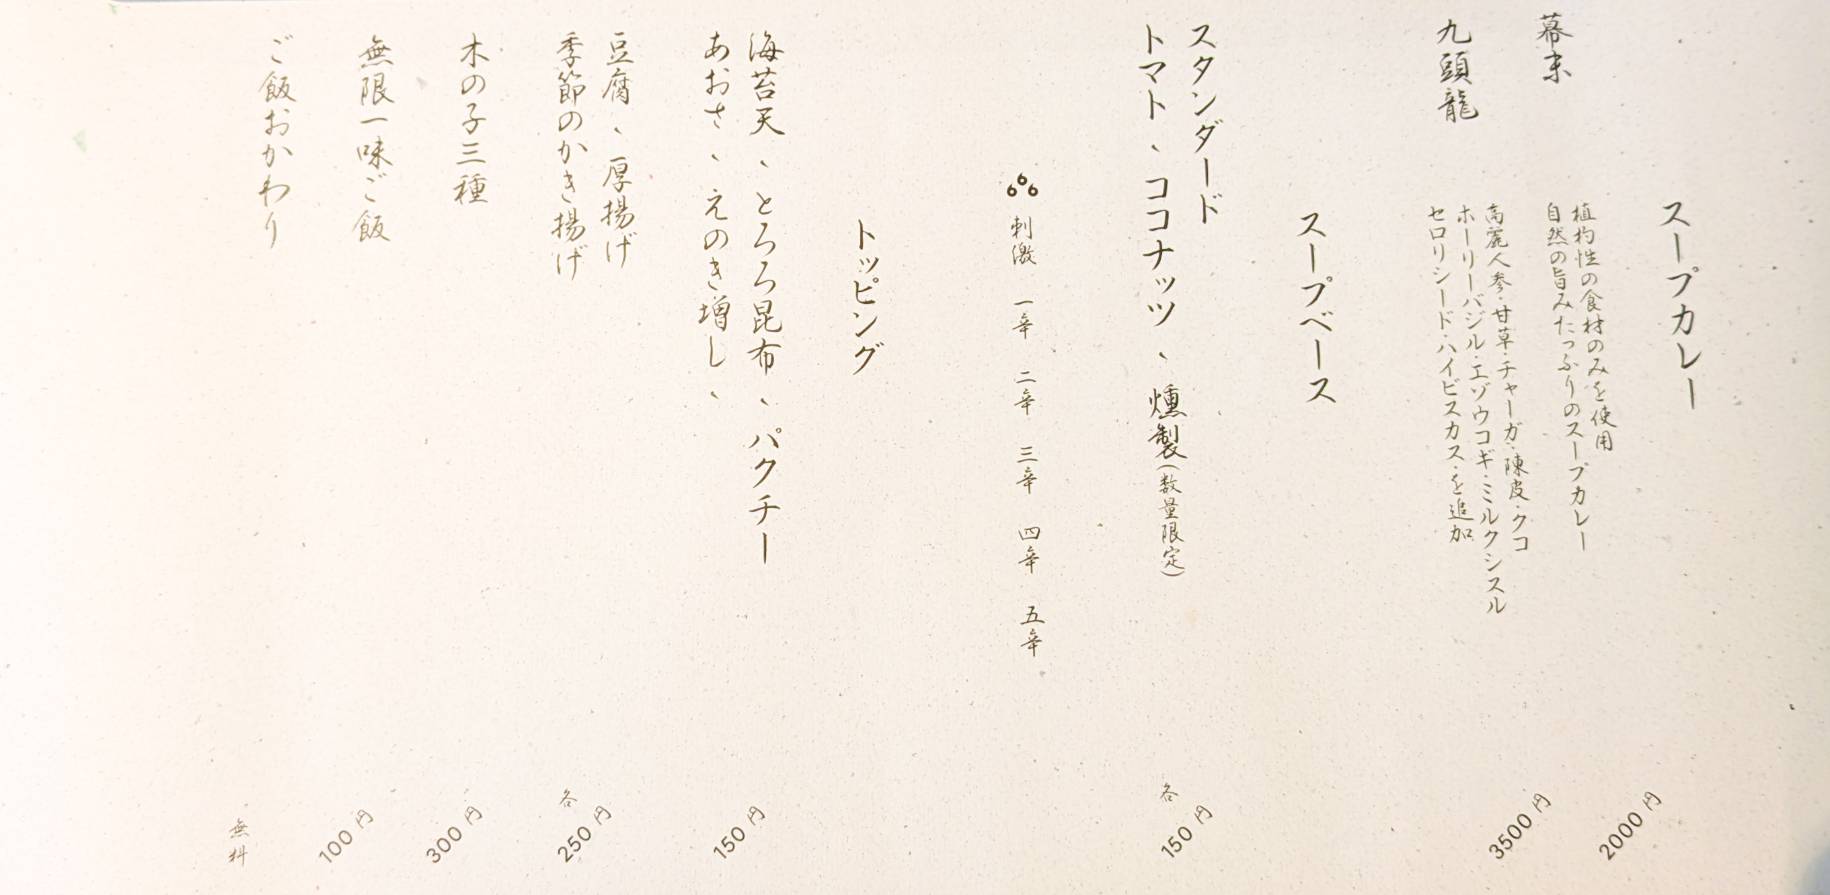 スープカレー
幕末
植杓性の食材のみを使用
自然の旨みたっぷりのスープカレー
2000円
九頭龍
高麗人参・甘草・チャーガ・陳皮・クコ
ホーリーバジル・エゾウコギ・ミルクシスル
セロリシード・ハイビスカス・を追加
3500円
スープベース
スタンダード
トマト、ココナッツ、燻製(数量限定)
各150円
刺激 一辛 二辛 三辛 四辛 五辛
トッピング
海苔天、とろろ昆布、パクチー
あおさ、えのき増し、
150円
豆腐、厚揚げ
季節のかき揚げ
各250円
木の子三種
300円
無限一味ご飯
100円
ご飯おかわり
無料